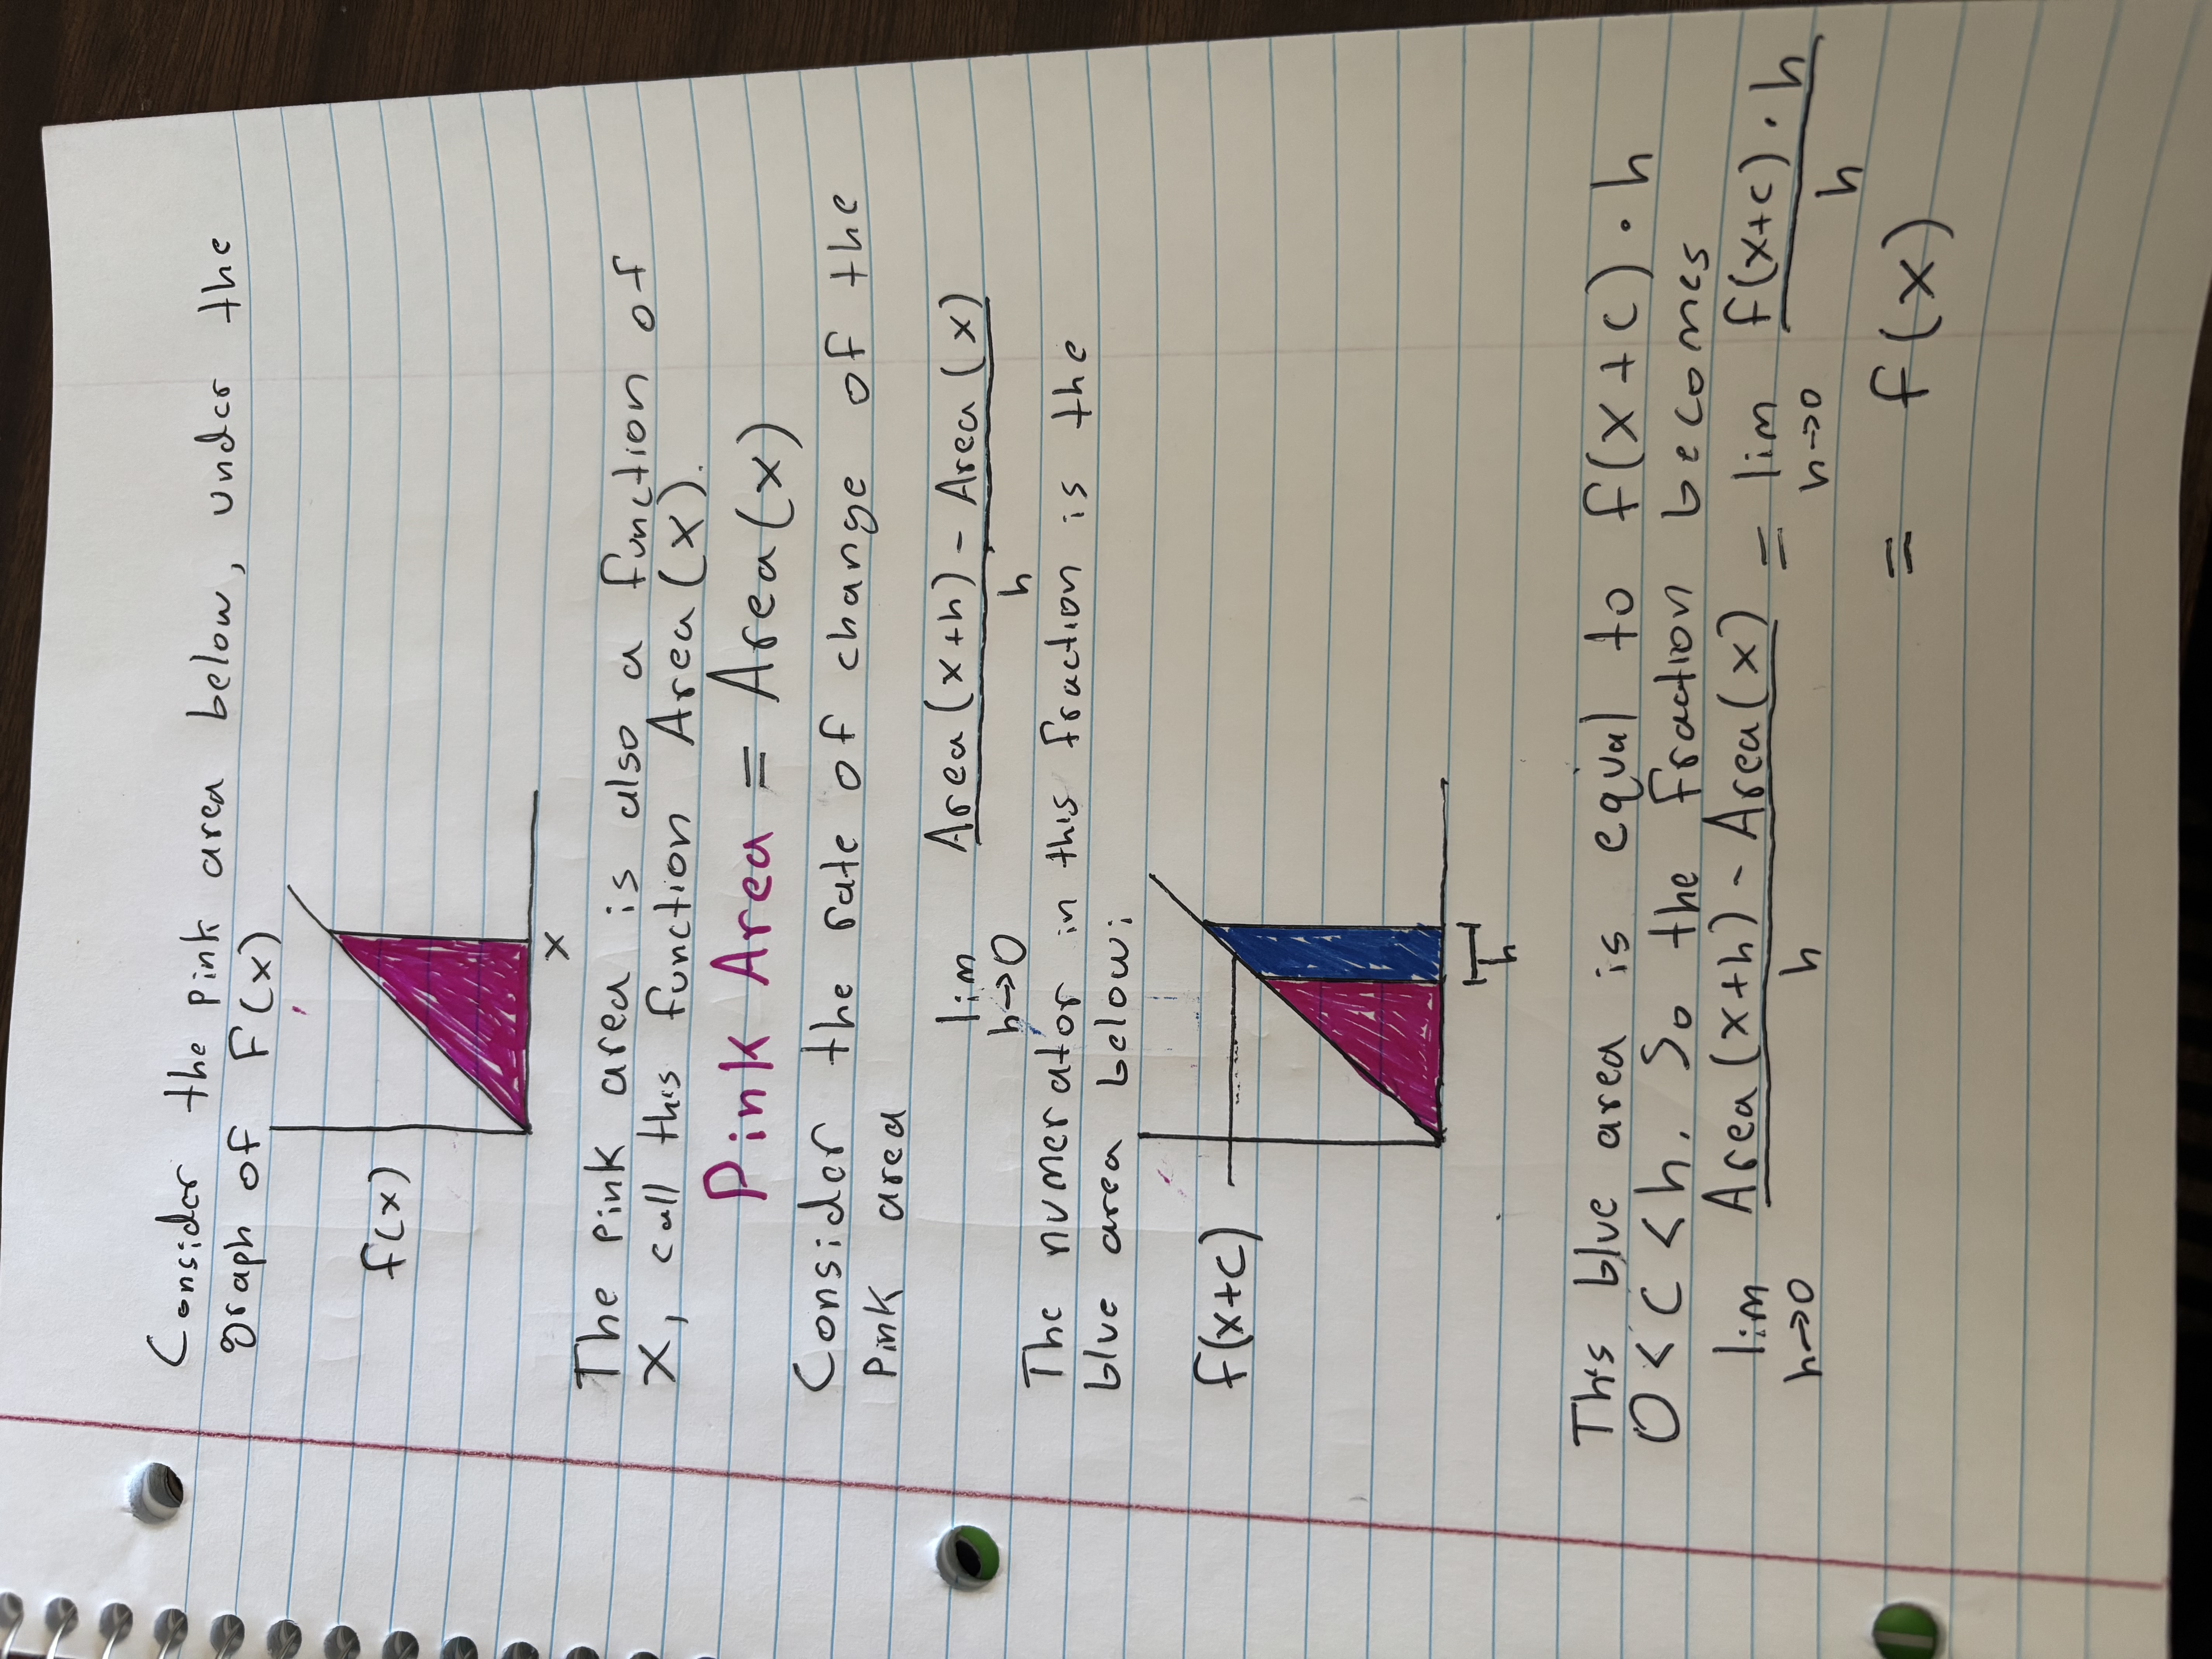 Consider the pink area below, under the
graph of F(x)
f(x)
x
The pink area is also a function of
x, call this function Area(x).
Pink Area = Area(x)
Consider the rate of change of the
pink area
lim h→0 Area(x+h) - Area(x) / h
The numerator in this fraction is the
blue area below:
f(x+c)
h
This blue area is equal to f(x+c)·h
0<c<h. So the fraction becomes
lim h→0 Area(x+h) - Area(x) / h = lim h→0 f(x+c)·h / h
= f(x)